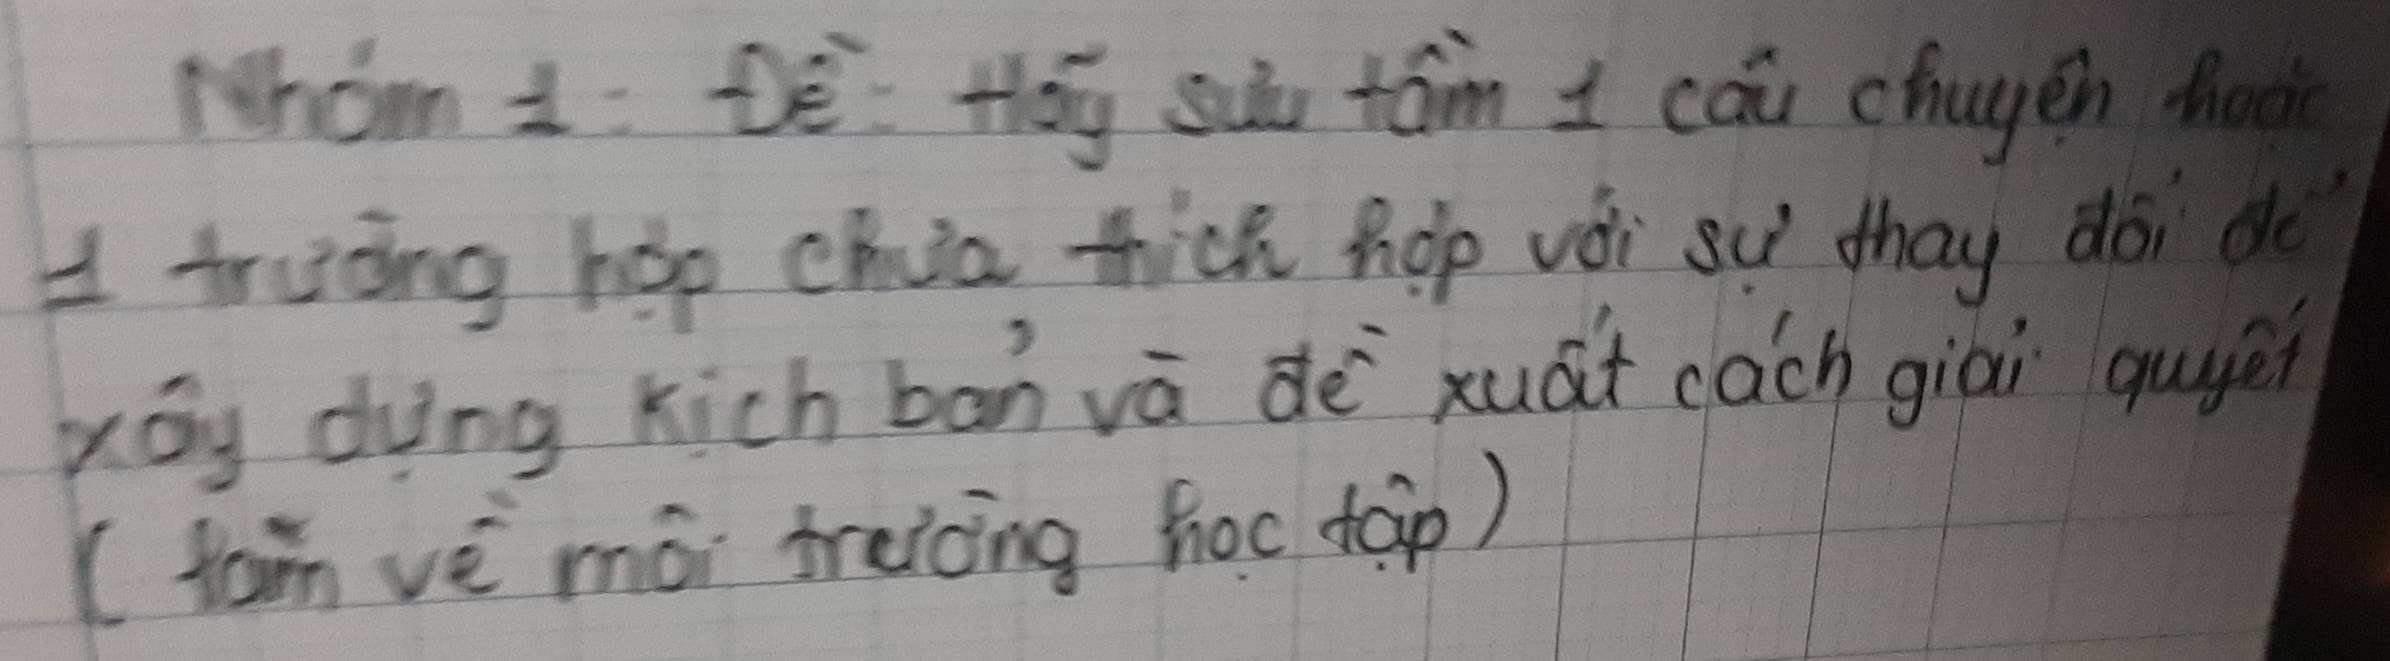 Nhóm 1: Đề: Hãy sưu tầm 1 câu chuyện hoặc
1 trường hợp chưa thích hợp với sự thay đổi để
xây dựng kịch bản và đề xuất cách giải quyết
(làm về môi trường học tập)